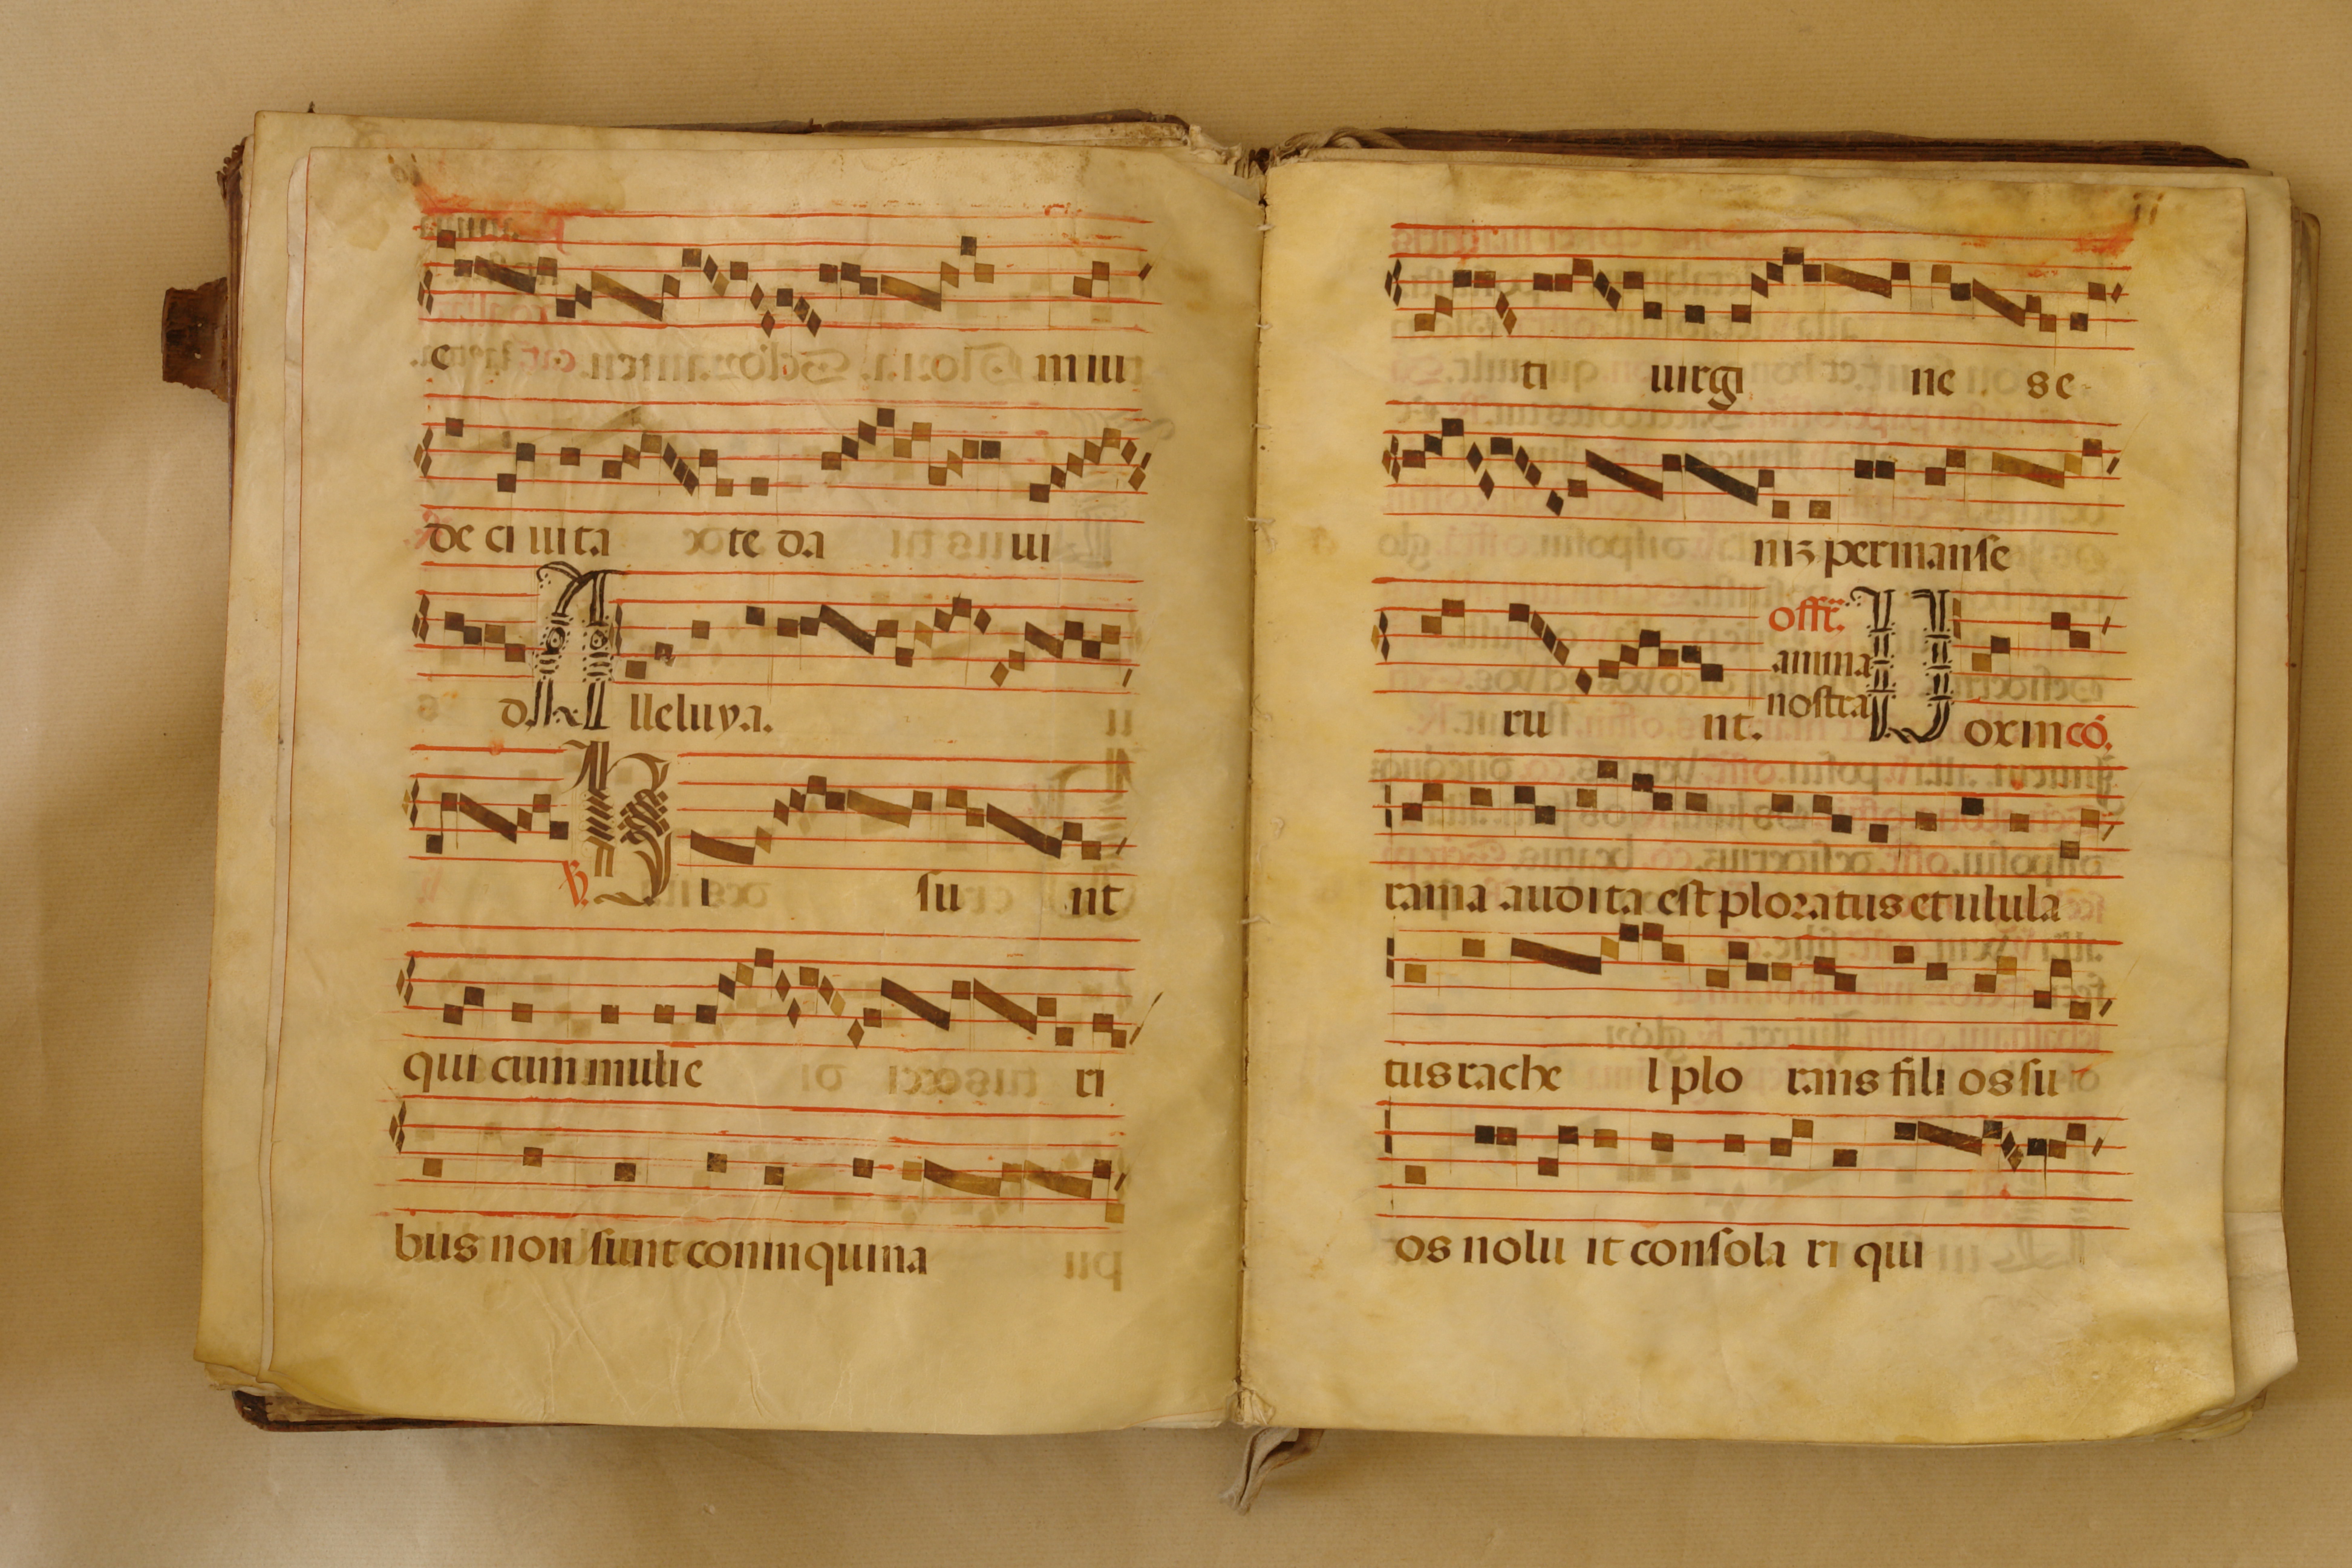 e mini
de ci uita te da ui
d. Alleluya.
℣. Hi su nt
qui cum mulie ri
bus non sunt coninquina
ii
ti uirgi ne se
niz permanse
ru nt. offr. anima nostra Uox in có.
rama audita est ploratus et ulula
tus rache l plo rans fili os su
os nolu it consola ri qui